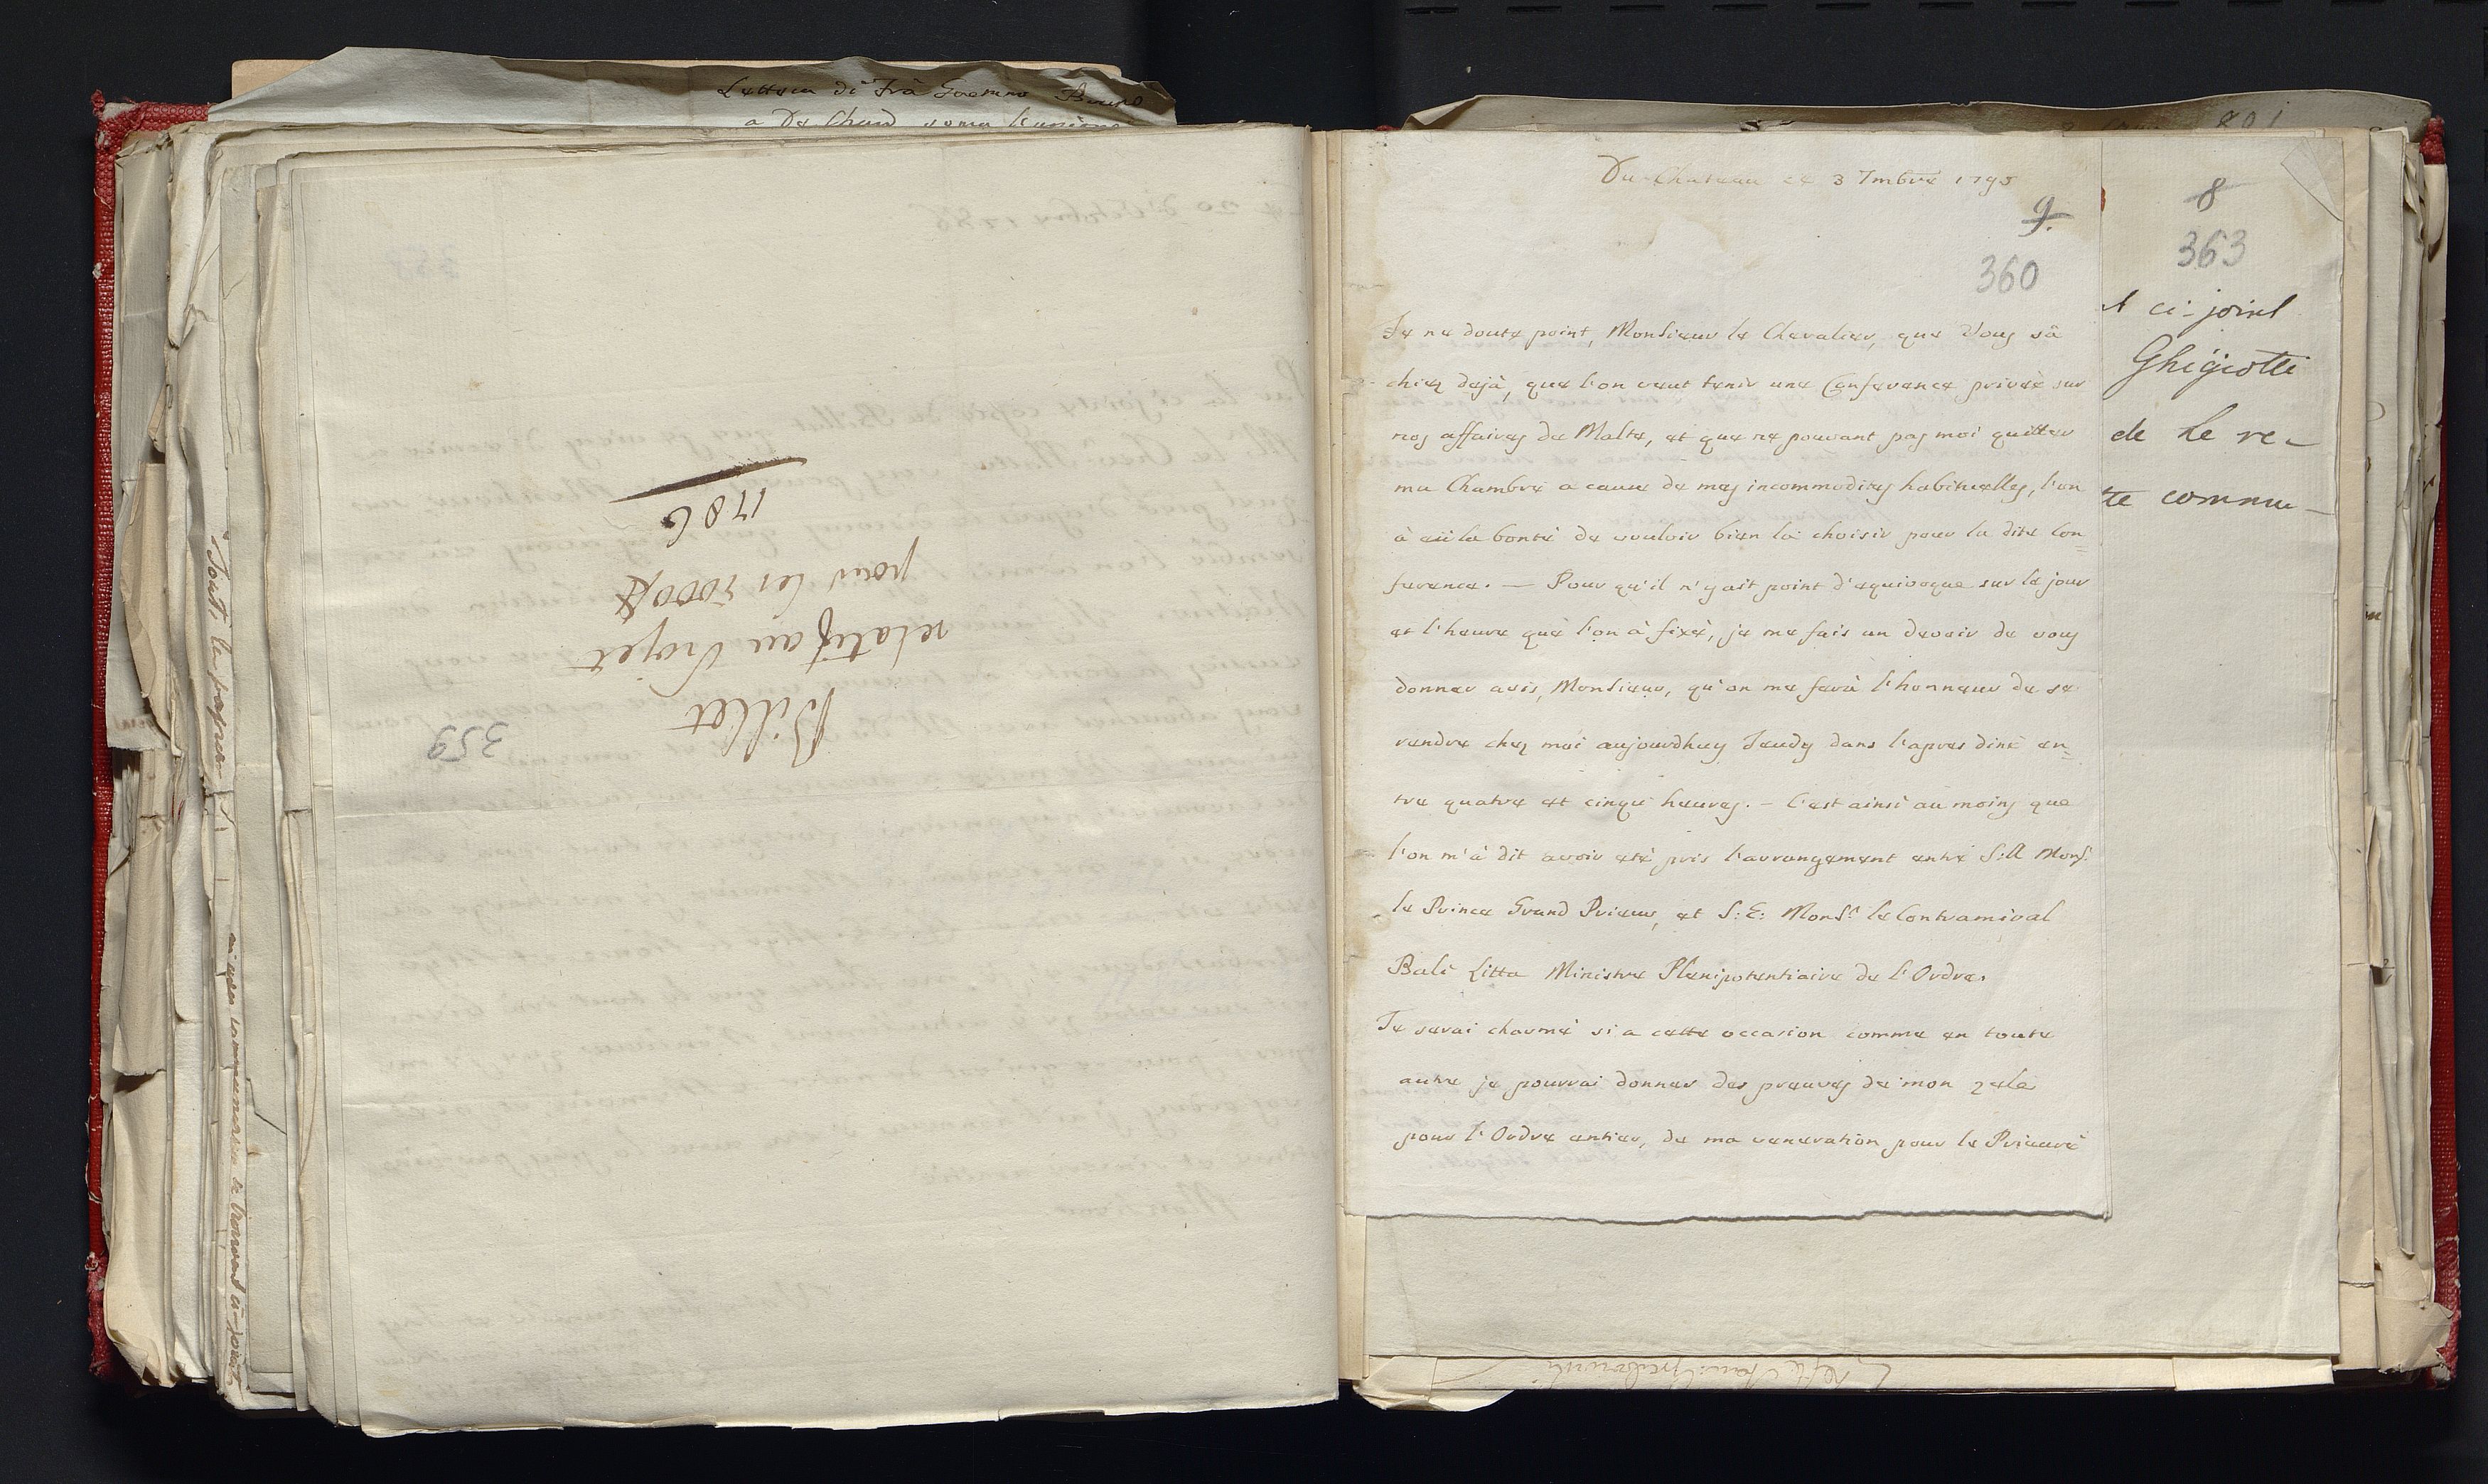 Lettera di Frà Gaetano Bruno
1786
pour les 5000 #
relatif au Projet
Billet
359
Tout le papier
se trouvent ci-joint
Du Chateau ce 3 7mbre 1795
9.
360
Je ne doute point, Monsieur le Chevalier, que Vous sâ
chiez dejà, que l'on veut tenir une Conference privèe sur
nos affaires de Malte, et que ne pouvant pas moi quitter
ma Chambre a cause de mes incommodites habituelles, l'on
à eü la bonté de vouloir bien la choisir pour la dite Con=
ference. — Pour qu'il n'y ait point d'equivoque sur le jour
et l'heure que l'on à fixé, je me fais un devoir de vous
donner avis, Monsieur, qu'on me ferà l'honneur de se
rendre chez moi aujourdhuy Jeudy dans l'apres diné en=
tre quatre et cinque heures. - C'est ainsi au moins que
l'on m'à dit avoir eté pris l'arrangement entre S:A Monsr.
le Prince Grand Prieur, et S:E: Monsr. le Contramiral
Bali Litta Ministre Plenipotentiaire de l'Ordre.
Je serai charmé si a cette occasion comme en toute
autre je pourrai donner des preuves de mon zele
pour l'Ordre entier, de ma veneration pour le Prieuré
8
363
t ci-joint
Ghigiotti
de Le re-
te commu-